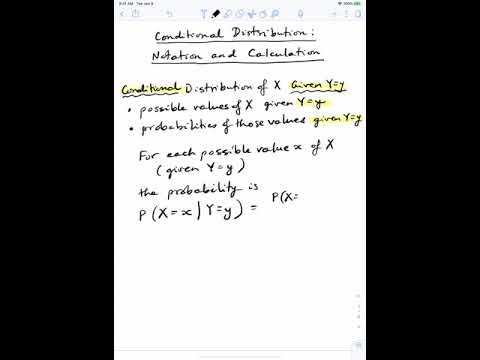 Conditional Distribution :
Notation and Calculation
Conditional Distribution of X Given Y=y
• possible values of X given Y=y
• probabilities of those values given Y=y
For each possible value x of X
( given Y=y )
the probability is
P(X=x | Y=y) = P(X=